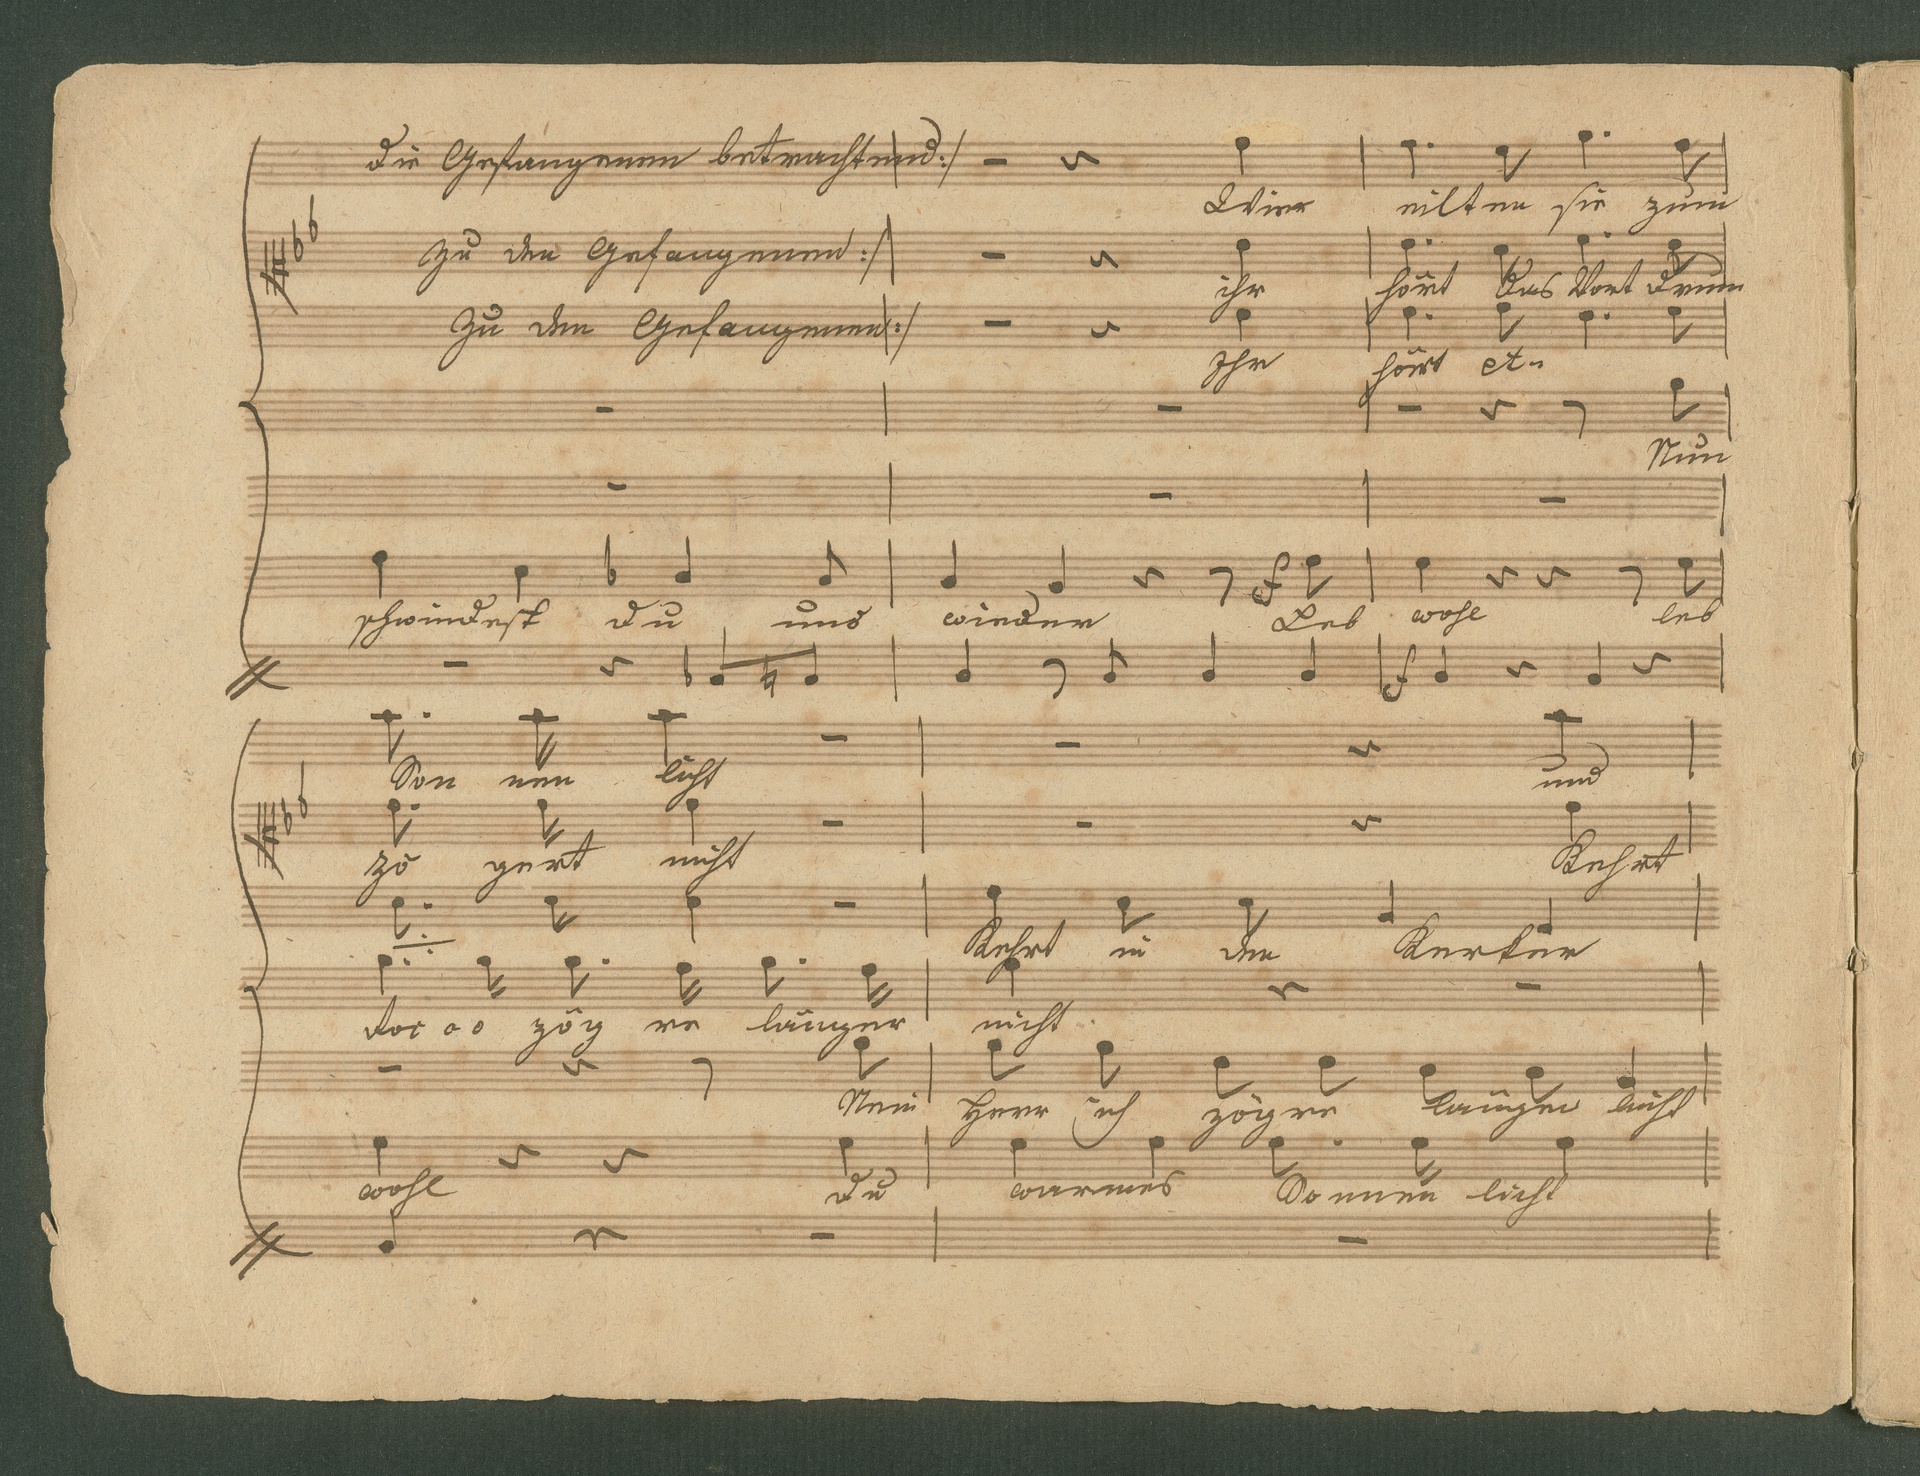 die Gefangenen betrachtend :/
Wier eilten sie zum
zu den Gefangenen :/
ihr hört das Wort drum
Zu den Gefangenen :/
Ihr hört et.
Nun
schwindest du uns wieder Leb wohl leb
Son nen licht und
zö gert nicht Kehrt
Kehrt in den Kerker
zög re länger nicht
Nein Herr ich zögre länger nicht
wohl du warmes Sonnen licht